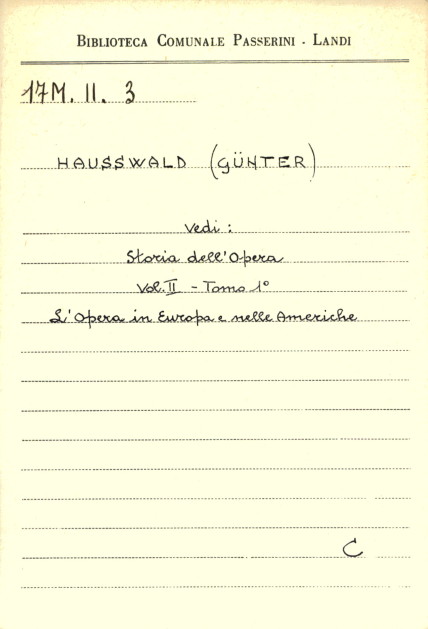 BIBLIOTECA COMUNALE PASSERINI - LANDI
17M. II. 3
HAUSSWALD (GÜNTER)
Vedi:
Storia dell'Opera
Vol. II - Tomo 1°
L'Opera in Europa e nelle Americhe
C